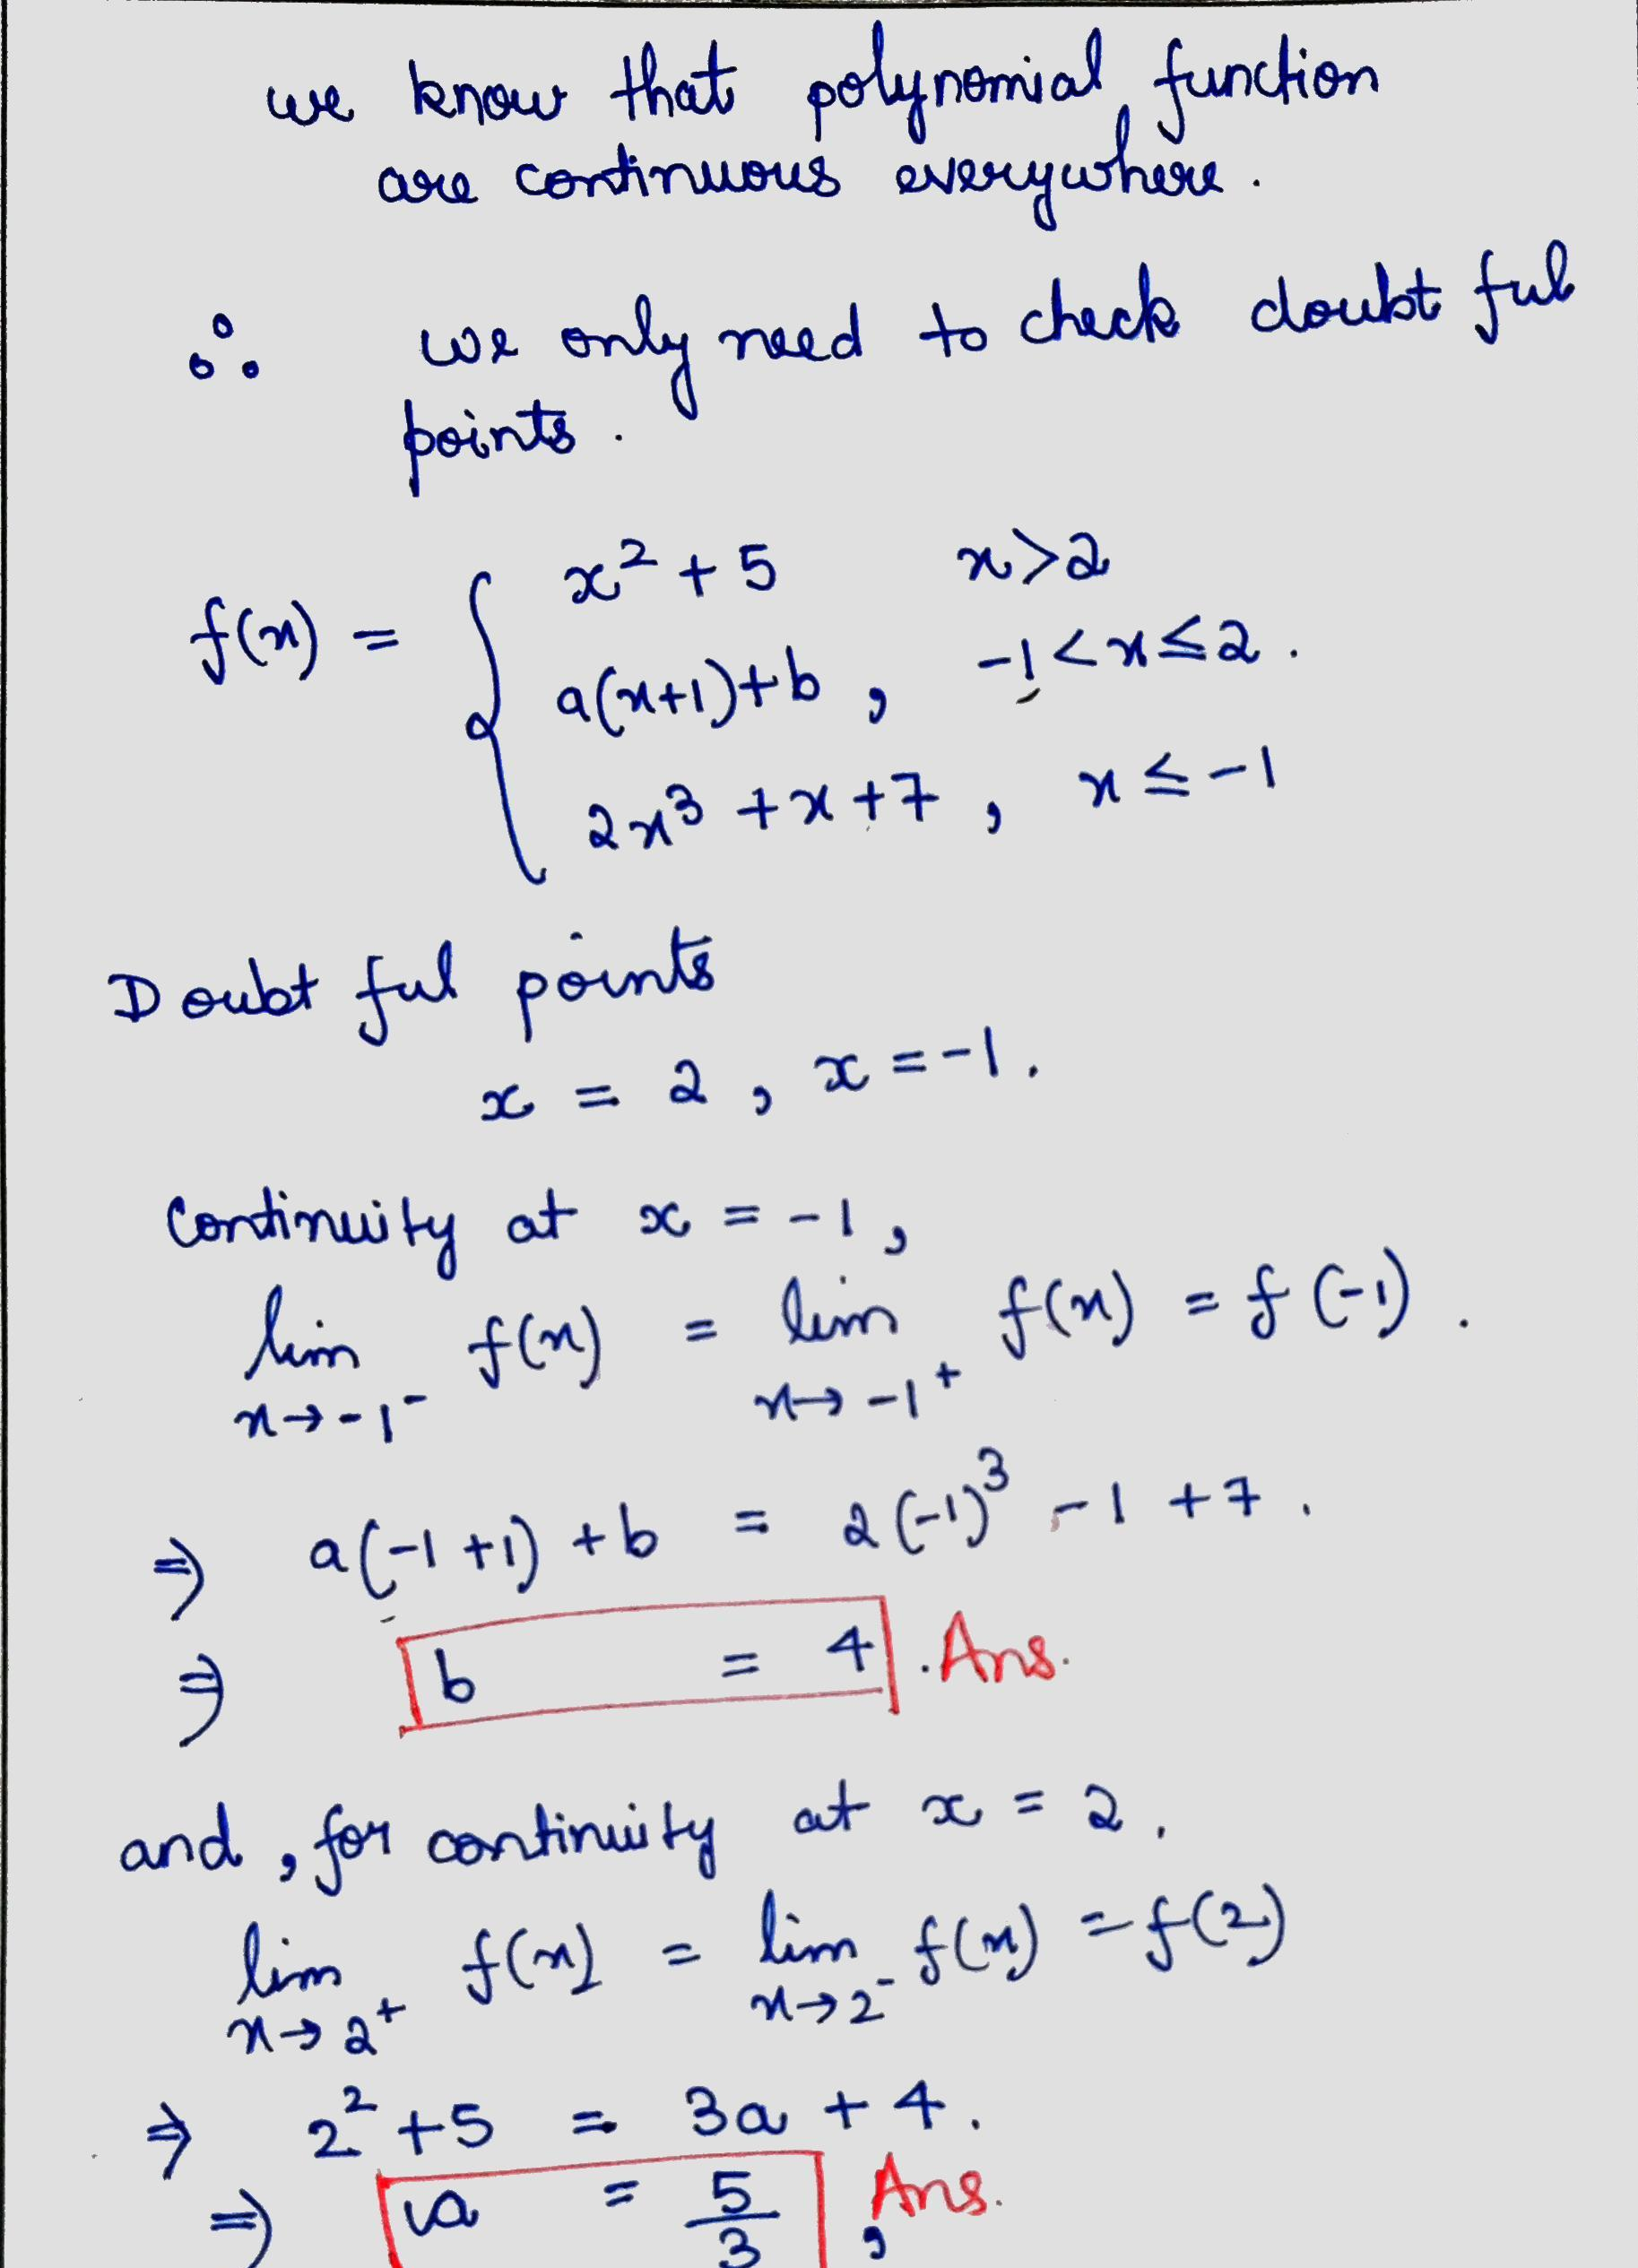 we know that polynomial function
are continuous everywhere.
∴ we only need to check doubt ful
points.
x² + 5 x>2
f(x) = { a(x+1)+b , -1<x≤2.
2x³ +x+7 , x≤-1
Doubt ful points
x = 2 , x = -1.
Continuity at x = -1,
lim f(x) = lim f(x) = f(-1).
x→-1⁻ x→-1⁺
⇒ a(-1+1)+b = 2(-1)³ -1 +7.
⇒ b = 4 . Ans.
and, for continuity at x = 2.
lim f(x) = lim f(x) = f(2)
x→2⁺ x→2⁻
⇒ 2² +5 = 3a + 4.
⇒ a = 5/3 , Ans.